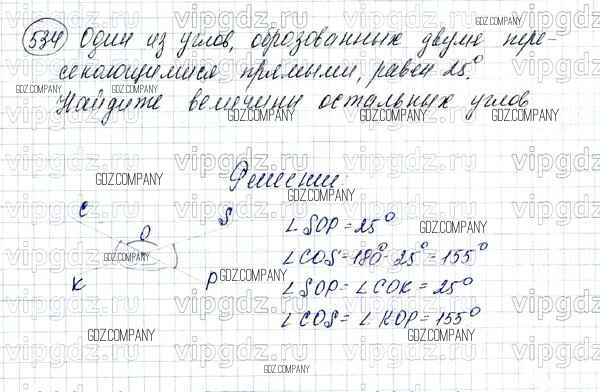 534 Один из углов, образованных двумя пере-
секающимися прямыми, равен 25°.
Найдите величины остальных углов
Решение
C
S
O
K
P
∠SOP = 25°
∠COS = 180° - 25° = 155°
∠SOP = ∠COK = 25°
∠COS = ∠KOP = 155°
GDZ.COMPANY
vipgdz.ru